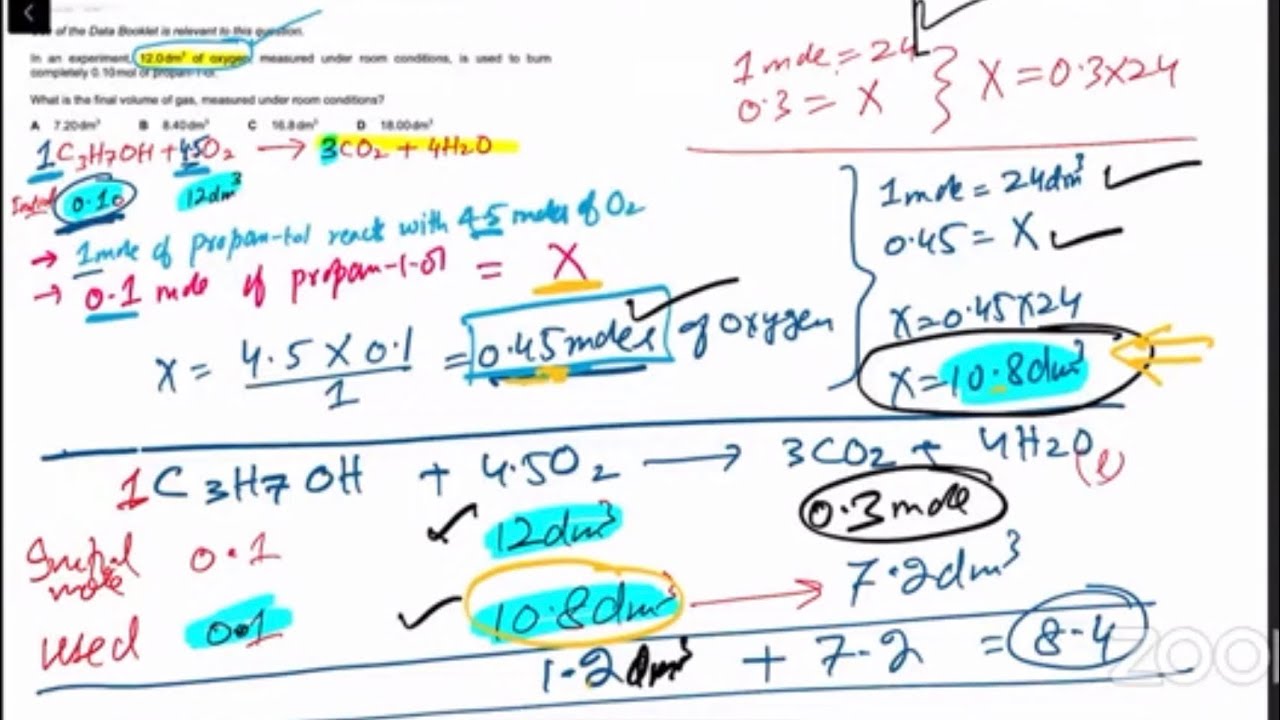 of the Data Booklet is relevant to this question.
In an experiment, 12.0 dm³ of oxygen, measured under room conditions, is used to burn
completely 0.10 mol of propan-1-ol.
What is the final volume of gas, measured under room conditions?
A 7.20 dm³ B 8.40 dm³ C 16.8 dm³ D 18.00 dm³
1 C3H7OH + 4.5O2 → 3CO2 + 4H2O
0.10 12dm³
→ 1 mole of propan-1-ol react with 4.5 moles of O2
→ 0.1 mole of propan-1-ol = X
X = 4.5 X 0.1 / 1 = 0.45 moles of oxygen
1 mole = 24
0.3 = X } X = 0.3 X 24
1 mole = 24dm³
0.45 = X
X = 0.45 X 24
X = 10.8dm³
1 C3H7OH + 4.5O2 → 3CO2 + 4H2O(l)
0.3 mole
Initial mole 0.1 12dm³
used 0.1 10.8dm³ → 7.2dm³
1.2dm³ + 7.2 = 8.4
ZOO